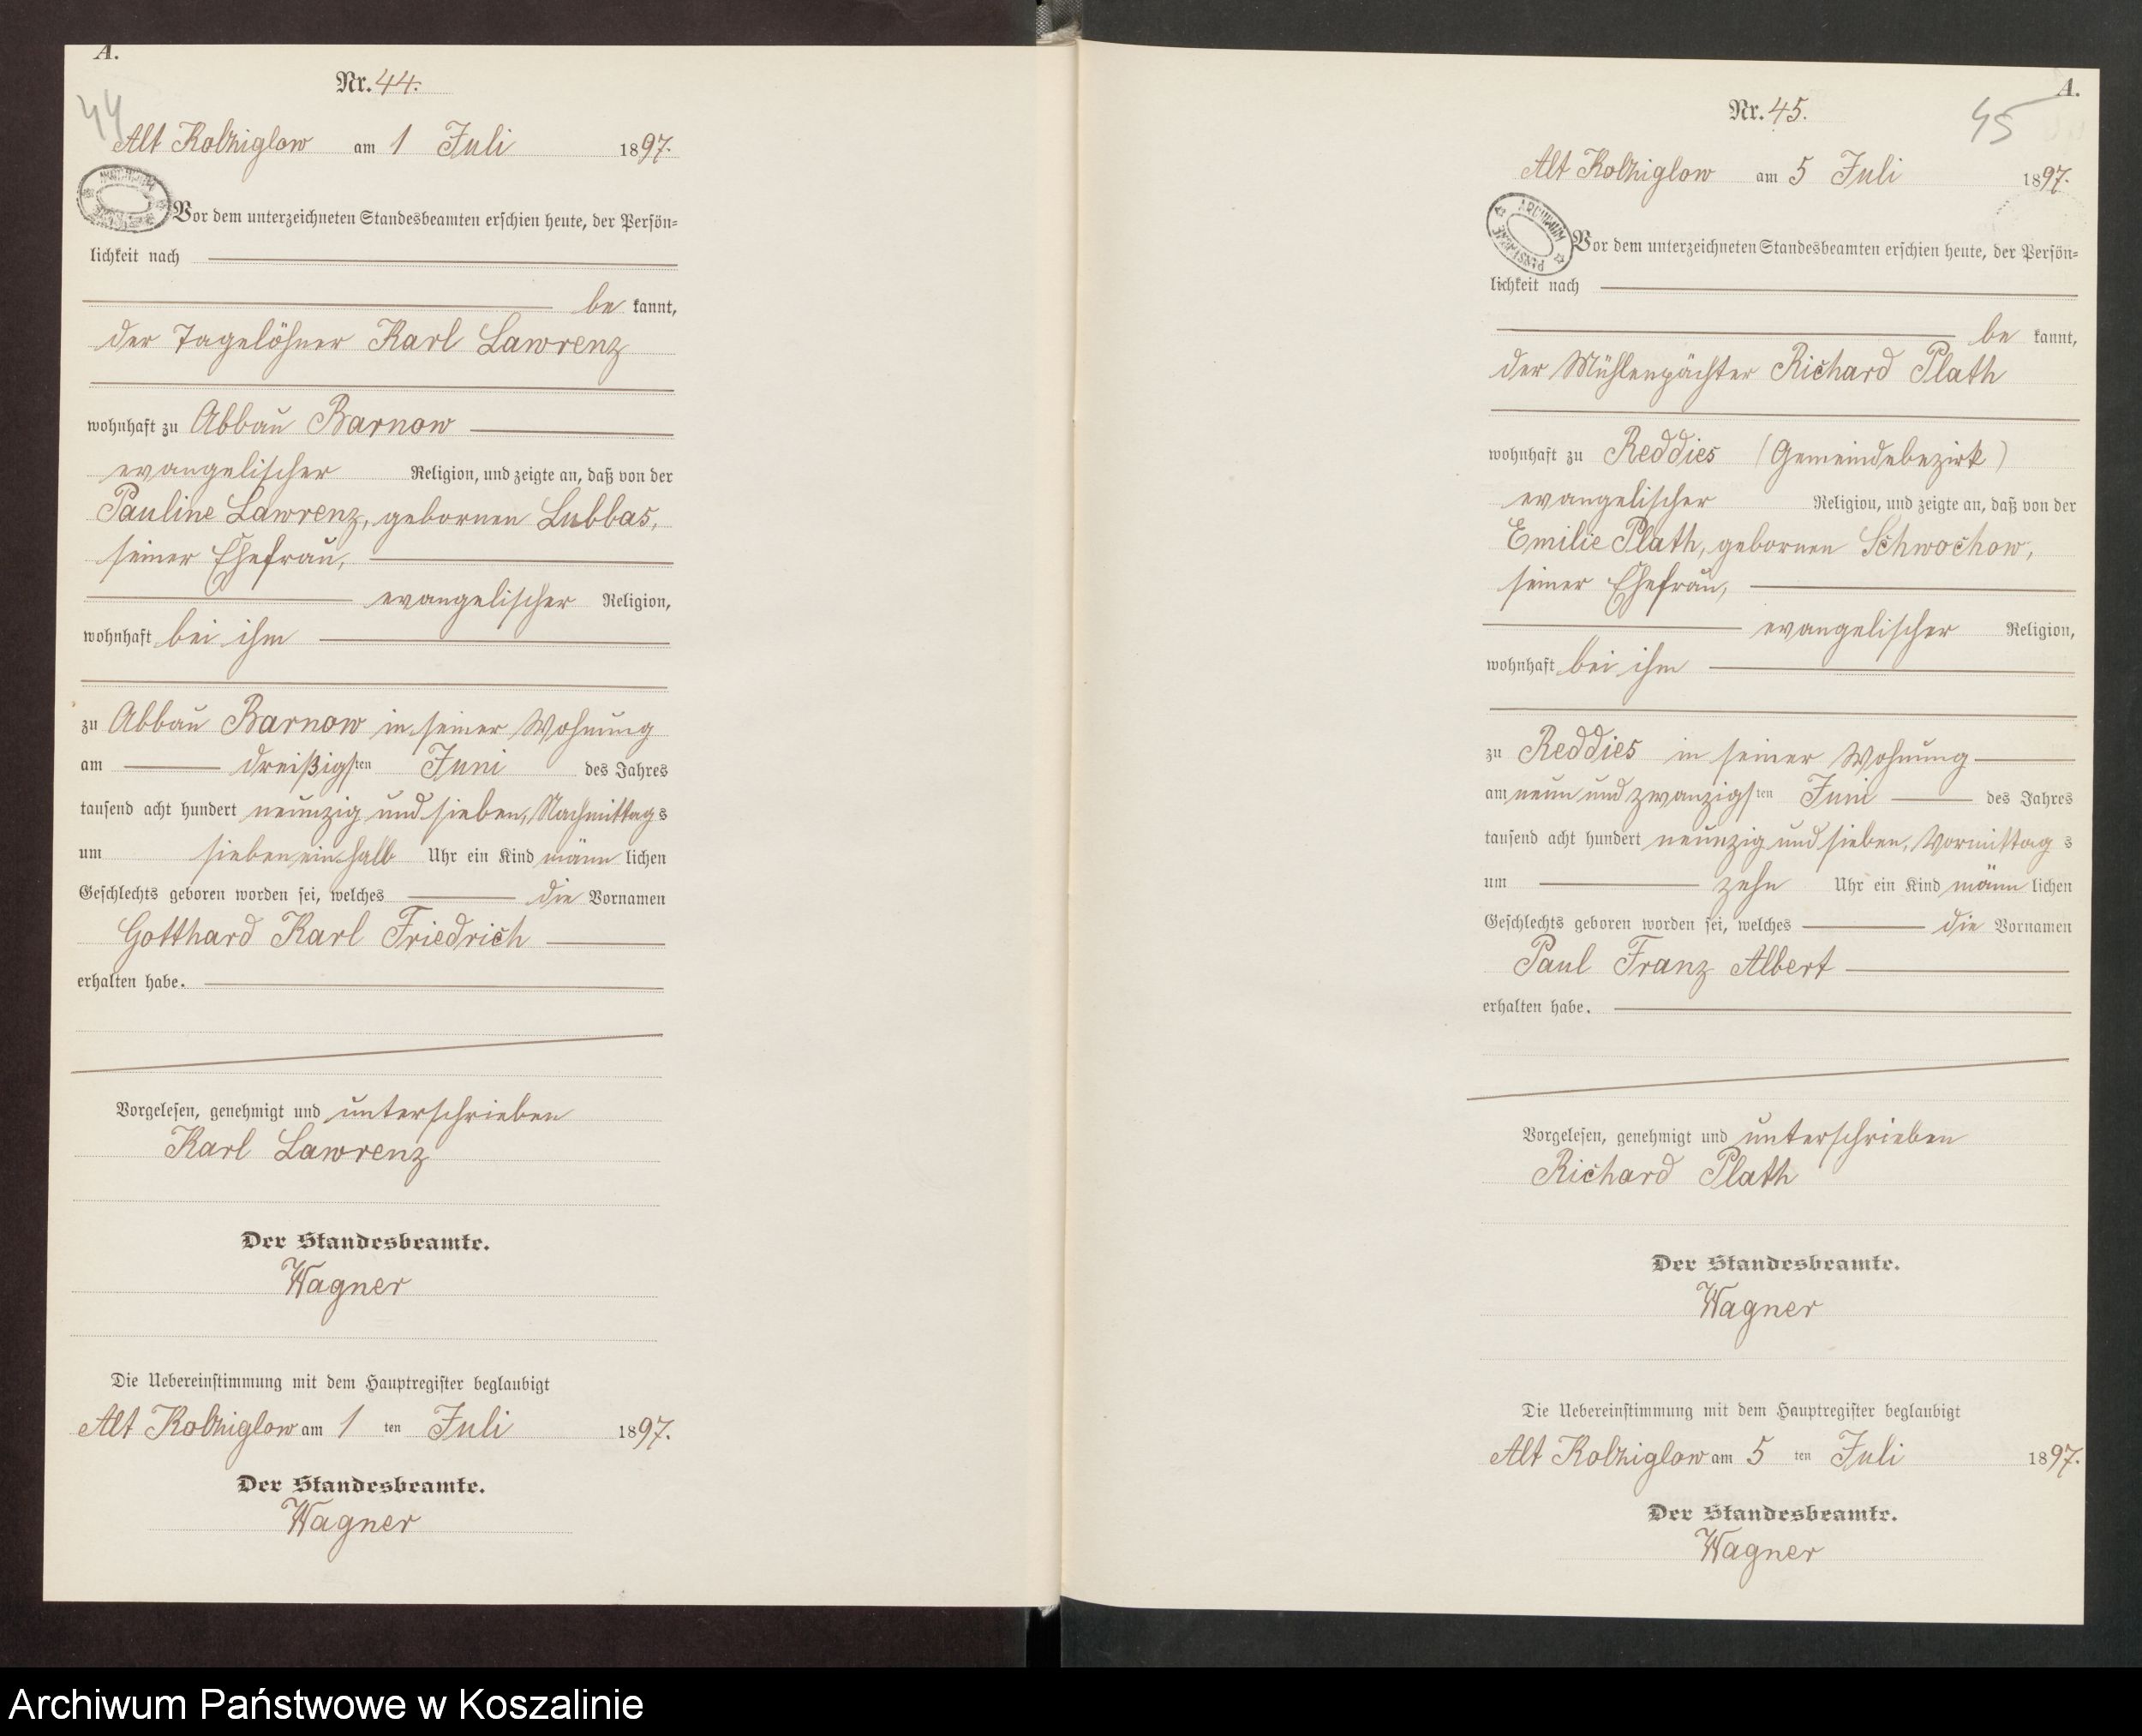 A.
Nr. 44.
44
Alt Kolziglow am 1 Juli 1897.
Vor dem unterzeichneten Standesbeamten erschien heute, der Persön=
lichkeit nach
be kannt,
der Tagelöhner Karl Lawrenz
wohnhaft zu Abbau Barnow
evangelischer Religion, und zeigte an, daß von der
Pauline Lawrenz, gebornen Lubbas,
seiner Ehefrau,
evangelischer Religion,
wohnhaft bei ihm
zu Abbau Barnow in seiner Wohnung
am dreißigsten Juni des Jahres
tausend acht hundert neunzig und sieben, Nachmittags
um siebeneinhalb Uhr ein Kind männlichen
Geschlechts geboren worden sei, welches die Vornamen
Gotthard Karl Friedrich
erhalten habe.
Vorgelesen, genehmigt und unterschrieben
Karl Lawrenz
Der Standesbeamte.
Wagner
Die Uebereinstimmung mit dem Hauptregister beglaubigt
Alt Kolziglow am 1 ten Juli 1897.
Der Standesbeamte.
Wagner
A.
Nr. 45.
45
Alt Kolziglow am 5 Juli 1897.
ARCHIWUM PAŃSTWOWE
Vor dem unterzeichneten Standesbeamten erschien heute, der Persön=
lichkeit nach
be kannt,
der Mühlenpächter Richard Plath
wohnhaft zu Reddies (Gemeindebezirk)
evangelischer Religion, und zeigte an, daß von der
Emilie Plath, gebornen Schwochow,
seiner Ehefrau,
evangelischer Religion,
wohnhaft bei ihm
zu Reddies in seiner Wohnung
am neun und zwanzigsten Juni des Jahres
tausend acht hundert neunzig und sieben, Vormittags
um zehn Uhr ein Kind männlichen
Geschlechts geboren worden sei, welches die Vornamen
Paul Franz Albert
erhalten habe.
Vorgelesen, genehmigt und unterschrieben
Richard Plath
Der Standesbeamte.
Wagner
Die Uebereinstimmung mit dem Hauptregister beglaubigt
Alt Kolziglow am 5 ten Juli 1897.
Der Standesbeamte.
Wagner
Archiwum Państwowe w Koszalinie